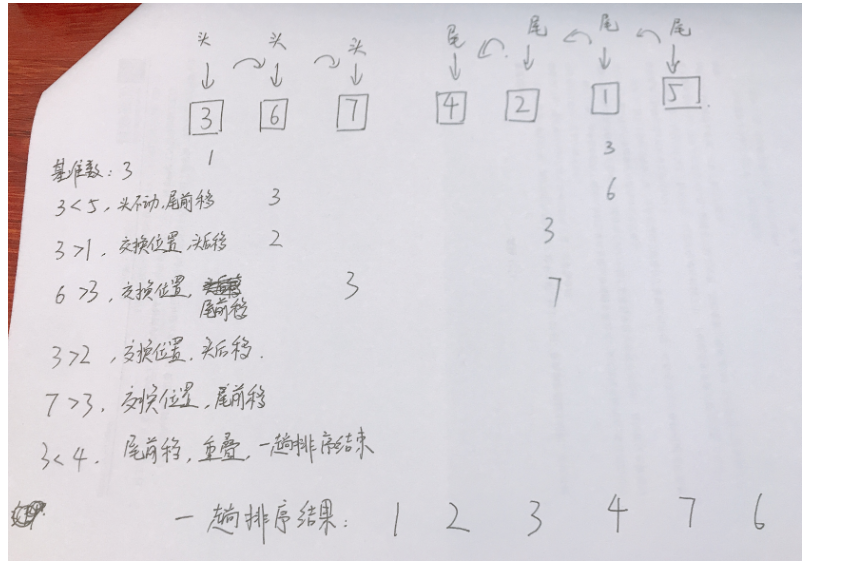 头 头 头 尾 尾 尾 尾
3 6 7 4 2 1 5
1 3
基准数:3
6
3<5,头不动,尾前移 3
3>1,交换位置,头后移 2 3
6>3,交换位置, 3 7
尾前移
3>2,交换位置,头后移.
7>3,交换位置,尾前移
3<4.尾前移,重叠,一趟排序结束
一趟排序结果: 1 2 3 4 7 6